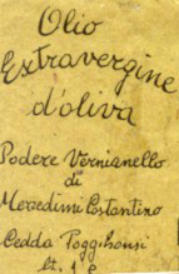 Olio
Extravergine
d'oliva
Podere Vernianello
di
Mecedimi Costantino
Cedda Poggibonsi
lt. 1 e